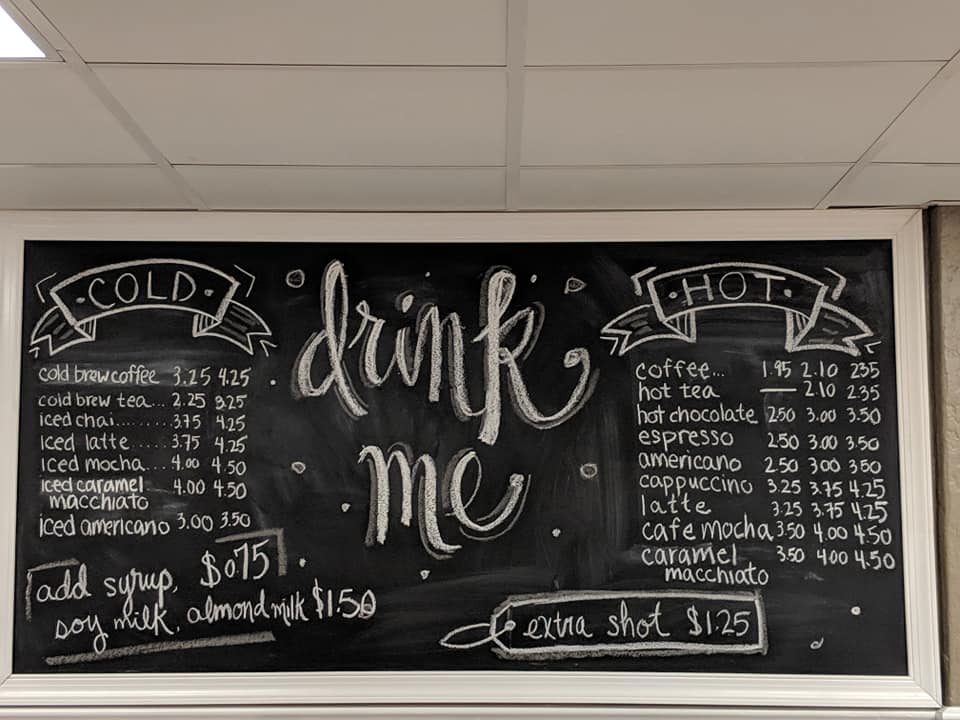 COLD
cold brew coffee 3.25 4.25
cold brew tea... 2.25 3.25
iced chai........ 3.75 4.25
iced latte ...... 3.75 4.25
iced mocha... 4.00 4.50
iced caramel 4.00 4.50
macchiato
iced americano 3.00 3.50
add syrup, $0.75
soy milk, almond milk $1.50
drink
me
HOT
coffee... 1.95 2.10 2.35
hot tea — 2.10 2.35
hot chocolate 2.50 3.00 3.50
espresso 2.50 3.00 3.50
americano 2.50 3.00 3.50
cappuccino 3.25 3.75 4.25
latte 3.25 3.75 4.25
cafe mocha 3.50 4.00 4.50
caramel 3.50 4.00 4.50
macchiato
extra shot $1.25